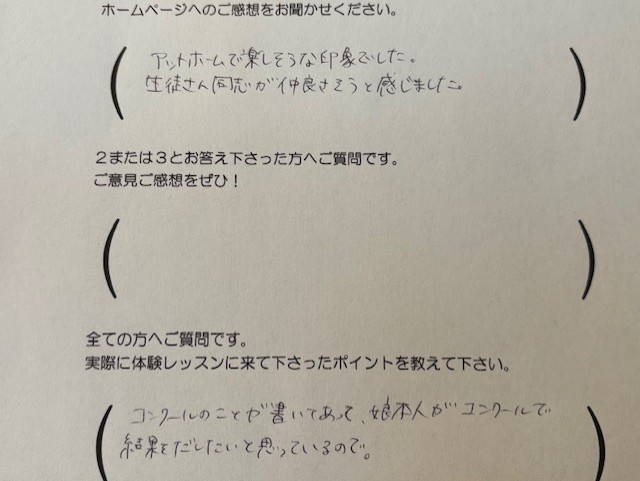 ホームページへのご感想をお聞かせください。
アットホームで楽しそうな印象でした。
生徒さん同志が仲良さそうと感じました。
2または3とお答え下さった方へご質問です。
ご意見ご感想をぜひ！
全ての方へご質問です。
実際に体験レッスンに来て下さったポイントを教えて下さい。
コンクールのことが書いてあって、娘本人がコンクールで
結果をだしたいと思っているので。